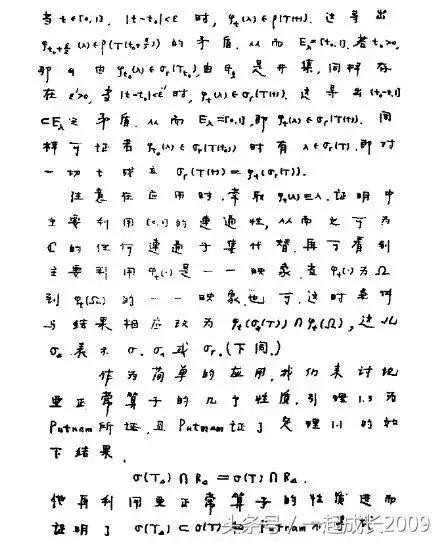 当 t∈[0,1], |t-t₀|<ε 时, φₜ(λ)∈ρ(T(t)). 这 导 出
的 矛 盾. 从 而 E_λ=[0,1]. 若 t₀>0,
那 么 由 是 开 集, 同 样 存
在 ε'>0, 当 |t-t₀|<ε' 时, φₜ(λ)∈σᵣ(T(t)). 这 导 出
⊂E_λ 之 矛 盾. 从 而 E_λ=[0,1], 即 φₜ(λ)∈σᵣ(T(t)). 同
样 可 证 若 时 有 λ∈σᵣ(T), 即 对
一 切 t 成 立 σᵣ(T(t))=φₜ(σᵣ(T)).
注 意 在 应 用 时, 常 取 φₜ(λ)≡λ. 证 明 中
主 要 利 用 [0,1] 的 连 通 性, 从 而 它 可 为
ℂ 的 任 何 连 通 子 集 代 替. 再 可 看 到
主 要 利 用 φₜ(·) 是 一 一 映 象, 当 φₜ(·) 为 Ω
到 φₜ(Ω) 的 一 一 映 象 也 可. 这 时 条 件
与 结 果 相 应 改 为 φₜ(σₐ(T))∩φₜ(Ω), 这 儿
表 示 σ, σₐ 或 σᵣ. (下 同.)
作 为 简 单 的 应 用, 我 们 来 讨 论
亚 正 常 算 子 的 几 个 性 质. 引 理 1.3 为
Putnam 所 证, 且 Putnam 证 了 定 理 1.1 的 如
下 结 果.
∩ = σ(T)∩
他 再 利 用 亚 正 常 算 子 的 性 质 进 而
证 明 了 ⊂σ(T) Putnam
头条号 / 一起成长2009